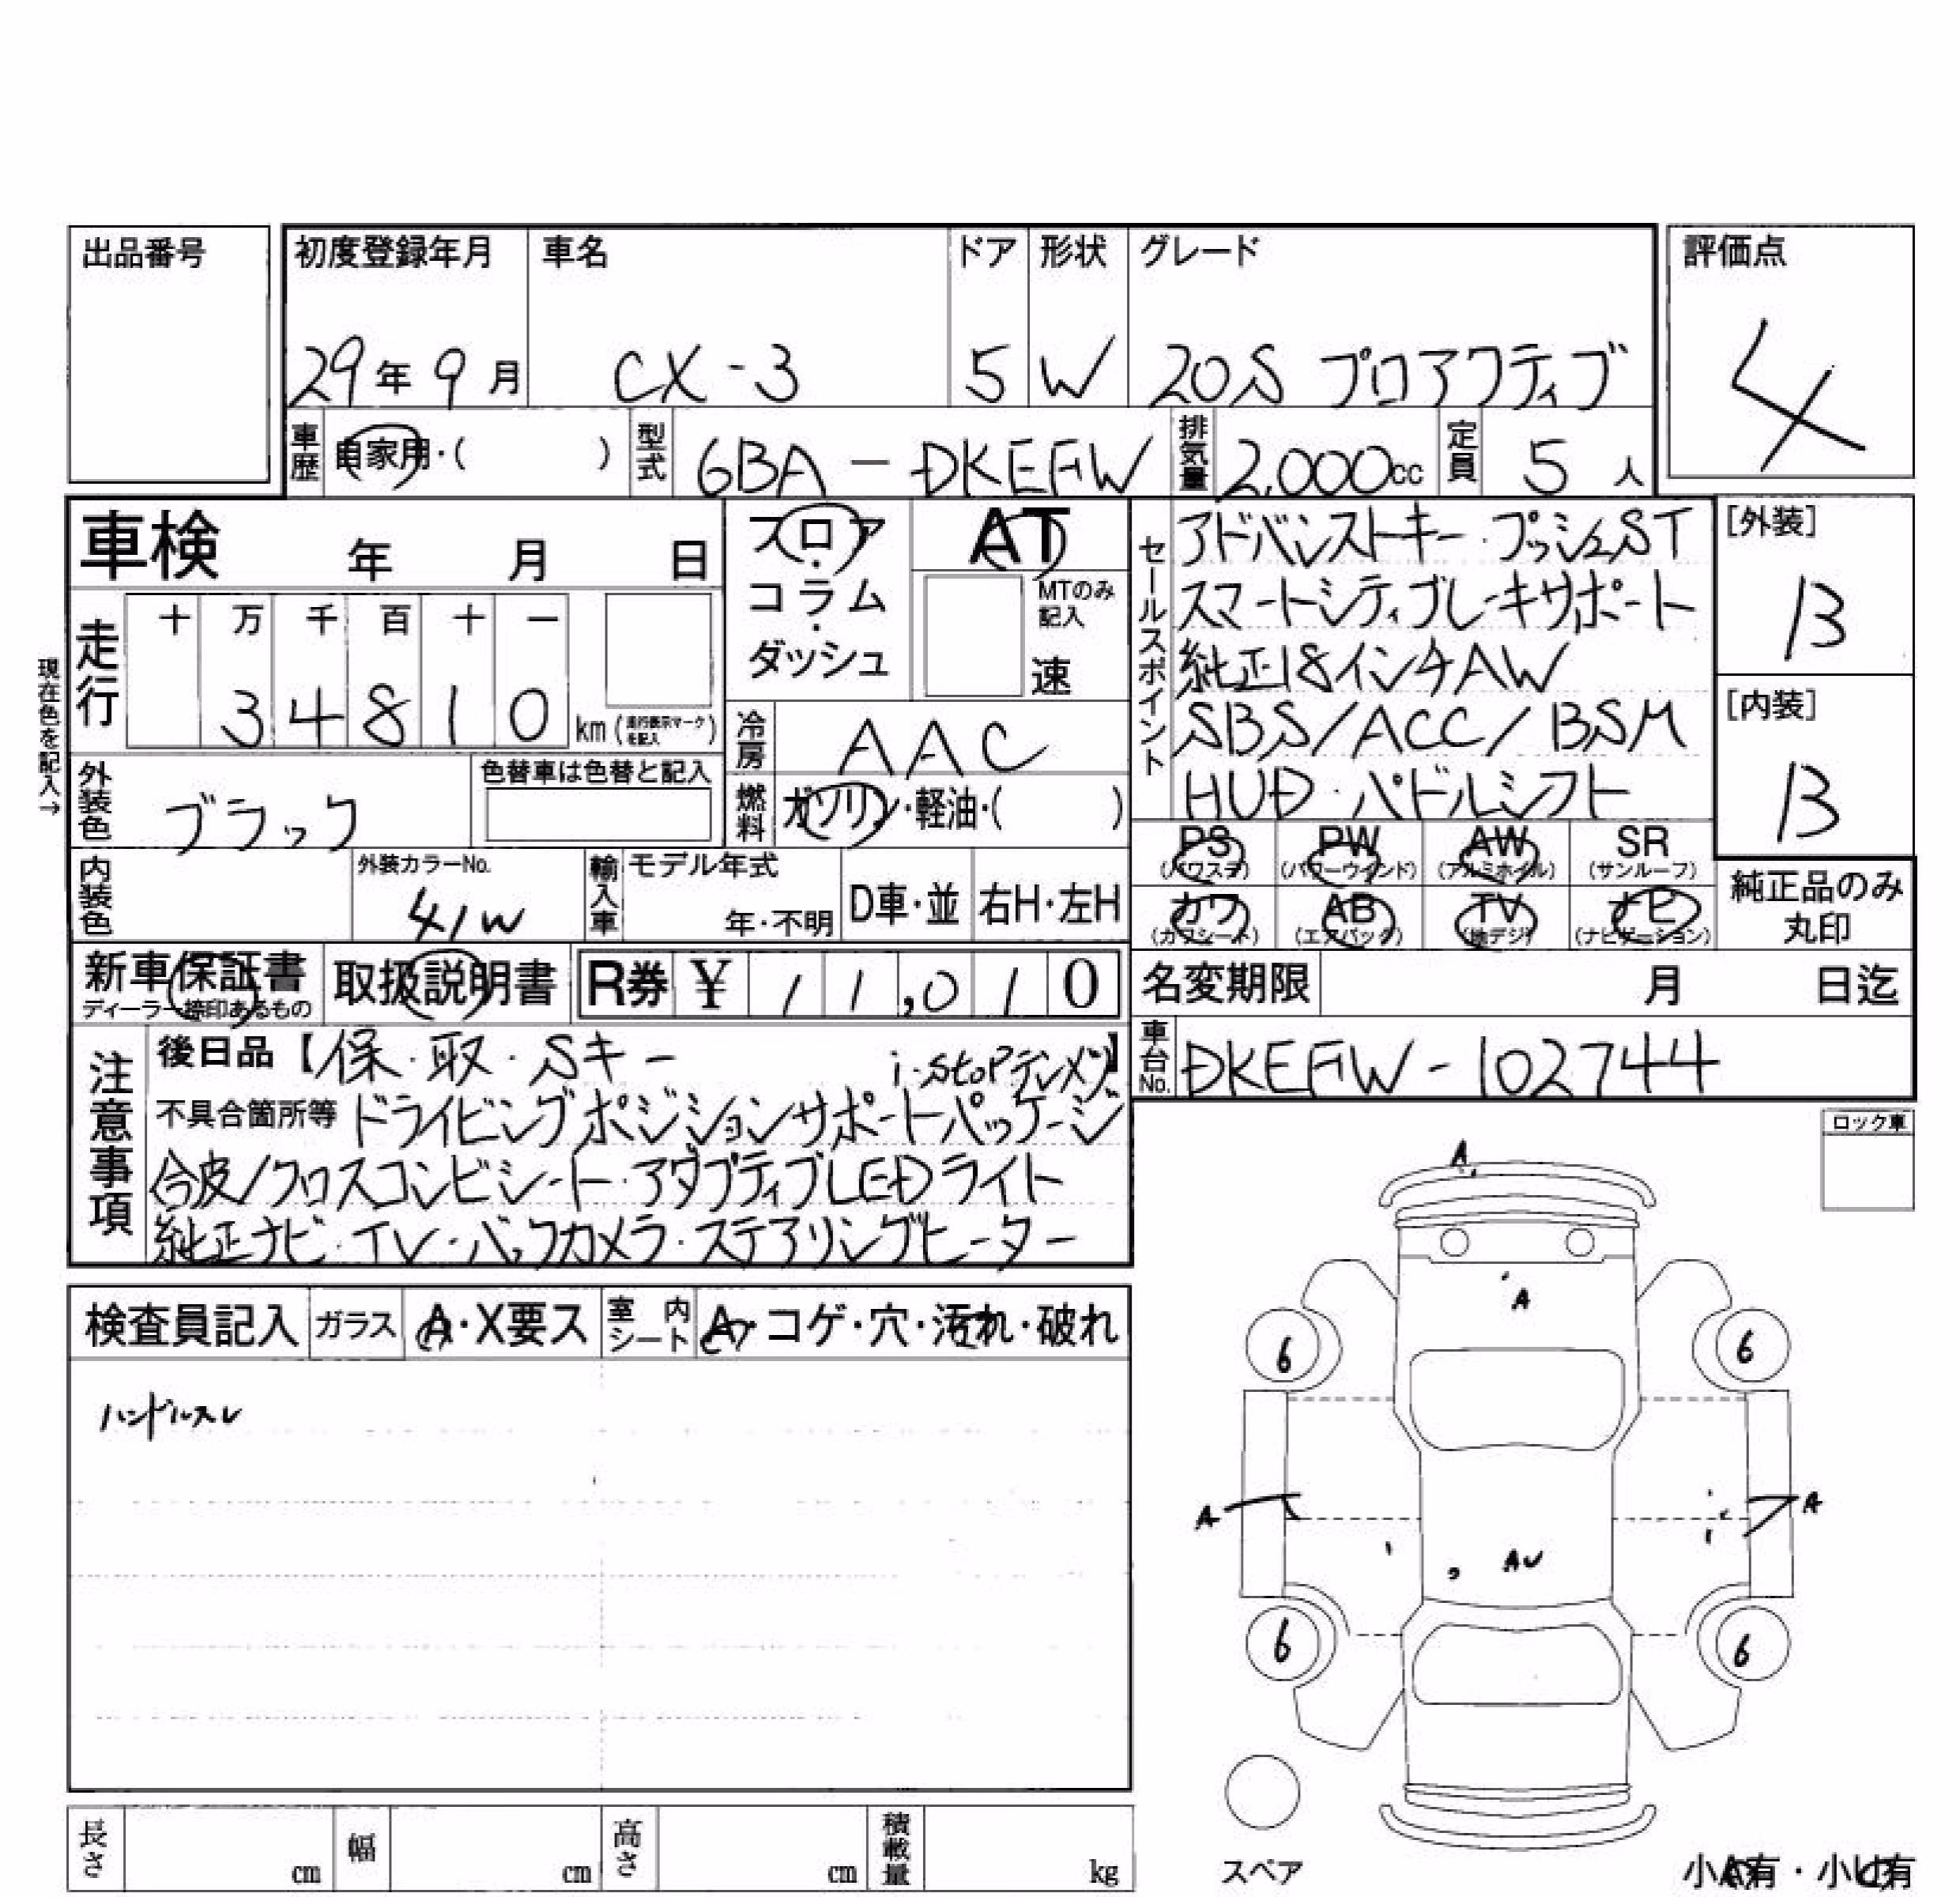 出品番号
初度登録年月 車名 ドア 形状 グレード 評価点
29年9月 CX-3 5 W 20S プロアクティブ 4
車歴 自家用・( ) 型式 6BA-DKEFW 排気量 2,000cc 定員 5人
車検 年 月 日
フロア・コラム・ダッシュ
AT
MTのみ記入
速
セールスポイント
アドバンストキー・プッシュST
スマートシティブレーキサポート
純正18インチAW
SBS/ACC/BSM
HUD・パドルシフト
[外装]
B
[内装]
B
現在色を記入→
走行 十 万 千 百 十 一
34810 km (走行表示マークを記入)
冷房 AAC
外装色 ブラック
色替車は色替と記入
燃料 ガソリン・軽油・( )
PS (パワステ) PW (パワーウインド) AW (アルミホイル) SR (サンルーフ)
カワ (カワシート) AB (エアバッグ) TV (地デジ) ナビ (ナビゲーション)
純正品のみ丸印
内装色
外装カラーNo.
41W
輸入車 モデル年式 年・不明 D車・並 右H・左H
新車保証書
ディーラー捺印あるもの
取扱説明書
R券 ¥ 11,010
名変期限 月 日迄
車台No. DKEFW-102744
注意事項
後日品【保・取・Sキー】
i-stopデンメツ
不具合箇所等 ドライビングポジションサポートパッケージ
合皮/クロスコンビシート・アダプティブLEDライト
純正ナビ・TV・バックカメラ・ステアリングヒーター
ロック車
検査員記入 ガラス A・X要ス 室内シート A・コゲ・穴・汚れ・破れ
ハンドルスレ
A
A
6 6
A A
AU
6 6
スペア
小A有・小U有
長さ cm 幅 cm 高さ cm 積載量 kg